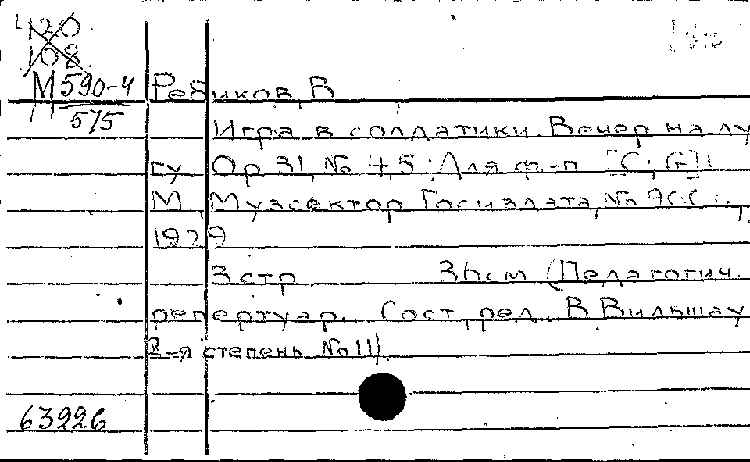 120
108
М 590-4
575
Ребиков, В
Игра в солдатики. Вечер на лу
гу Op 31, № 4, 5. Для ф.-п.
М Музсектор Госиздата, №
1929
3 стр 36 см (Педагогич.
репертуар. Сост., ред. В Вильшау
2-я степень № 11)
63226